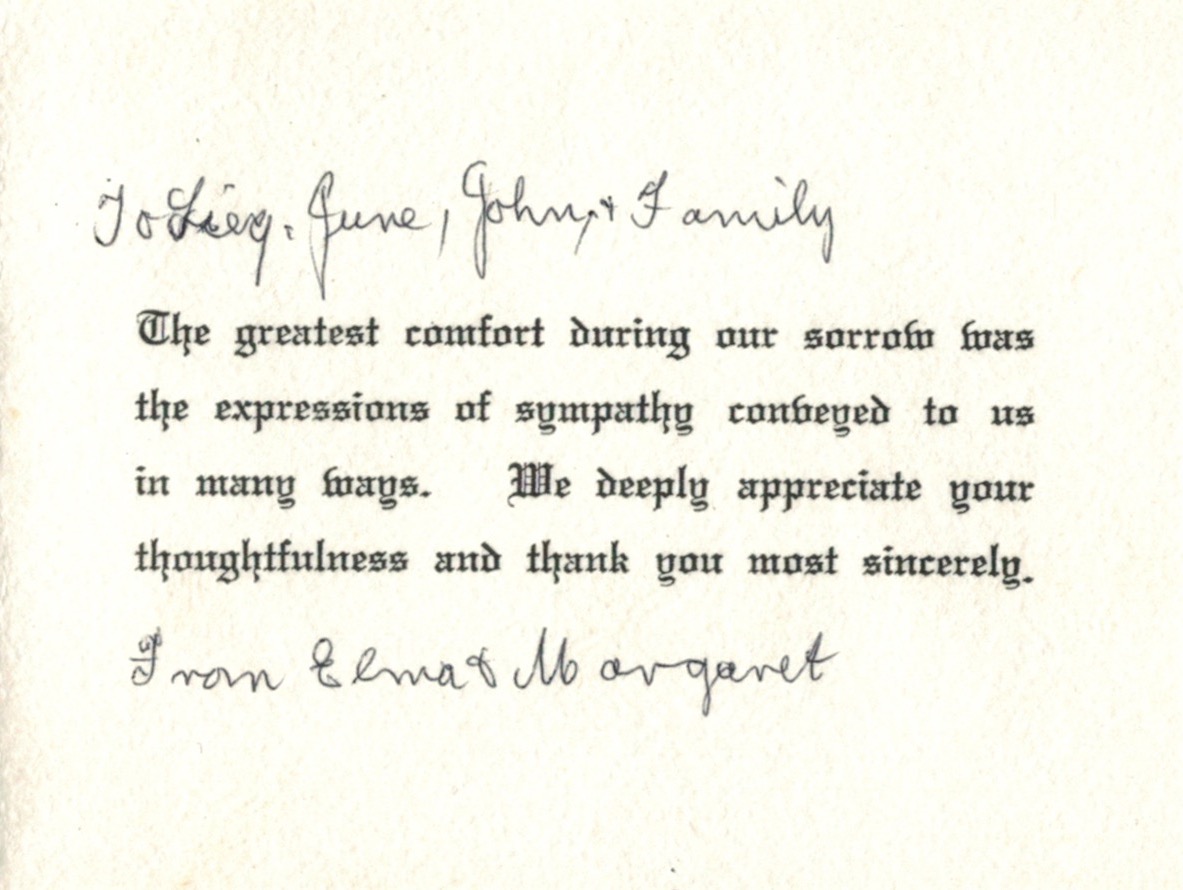 To June, John, + Family
The greatest comfort during our sorrow was
the expressions of sympathy conveyed to us
in many ways. We deeply appreciate your
thoughtfulness and thank you most sincerely.
From Elma & Margaret